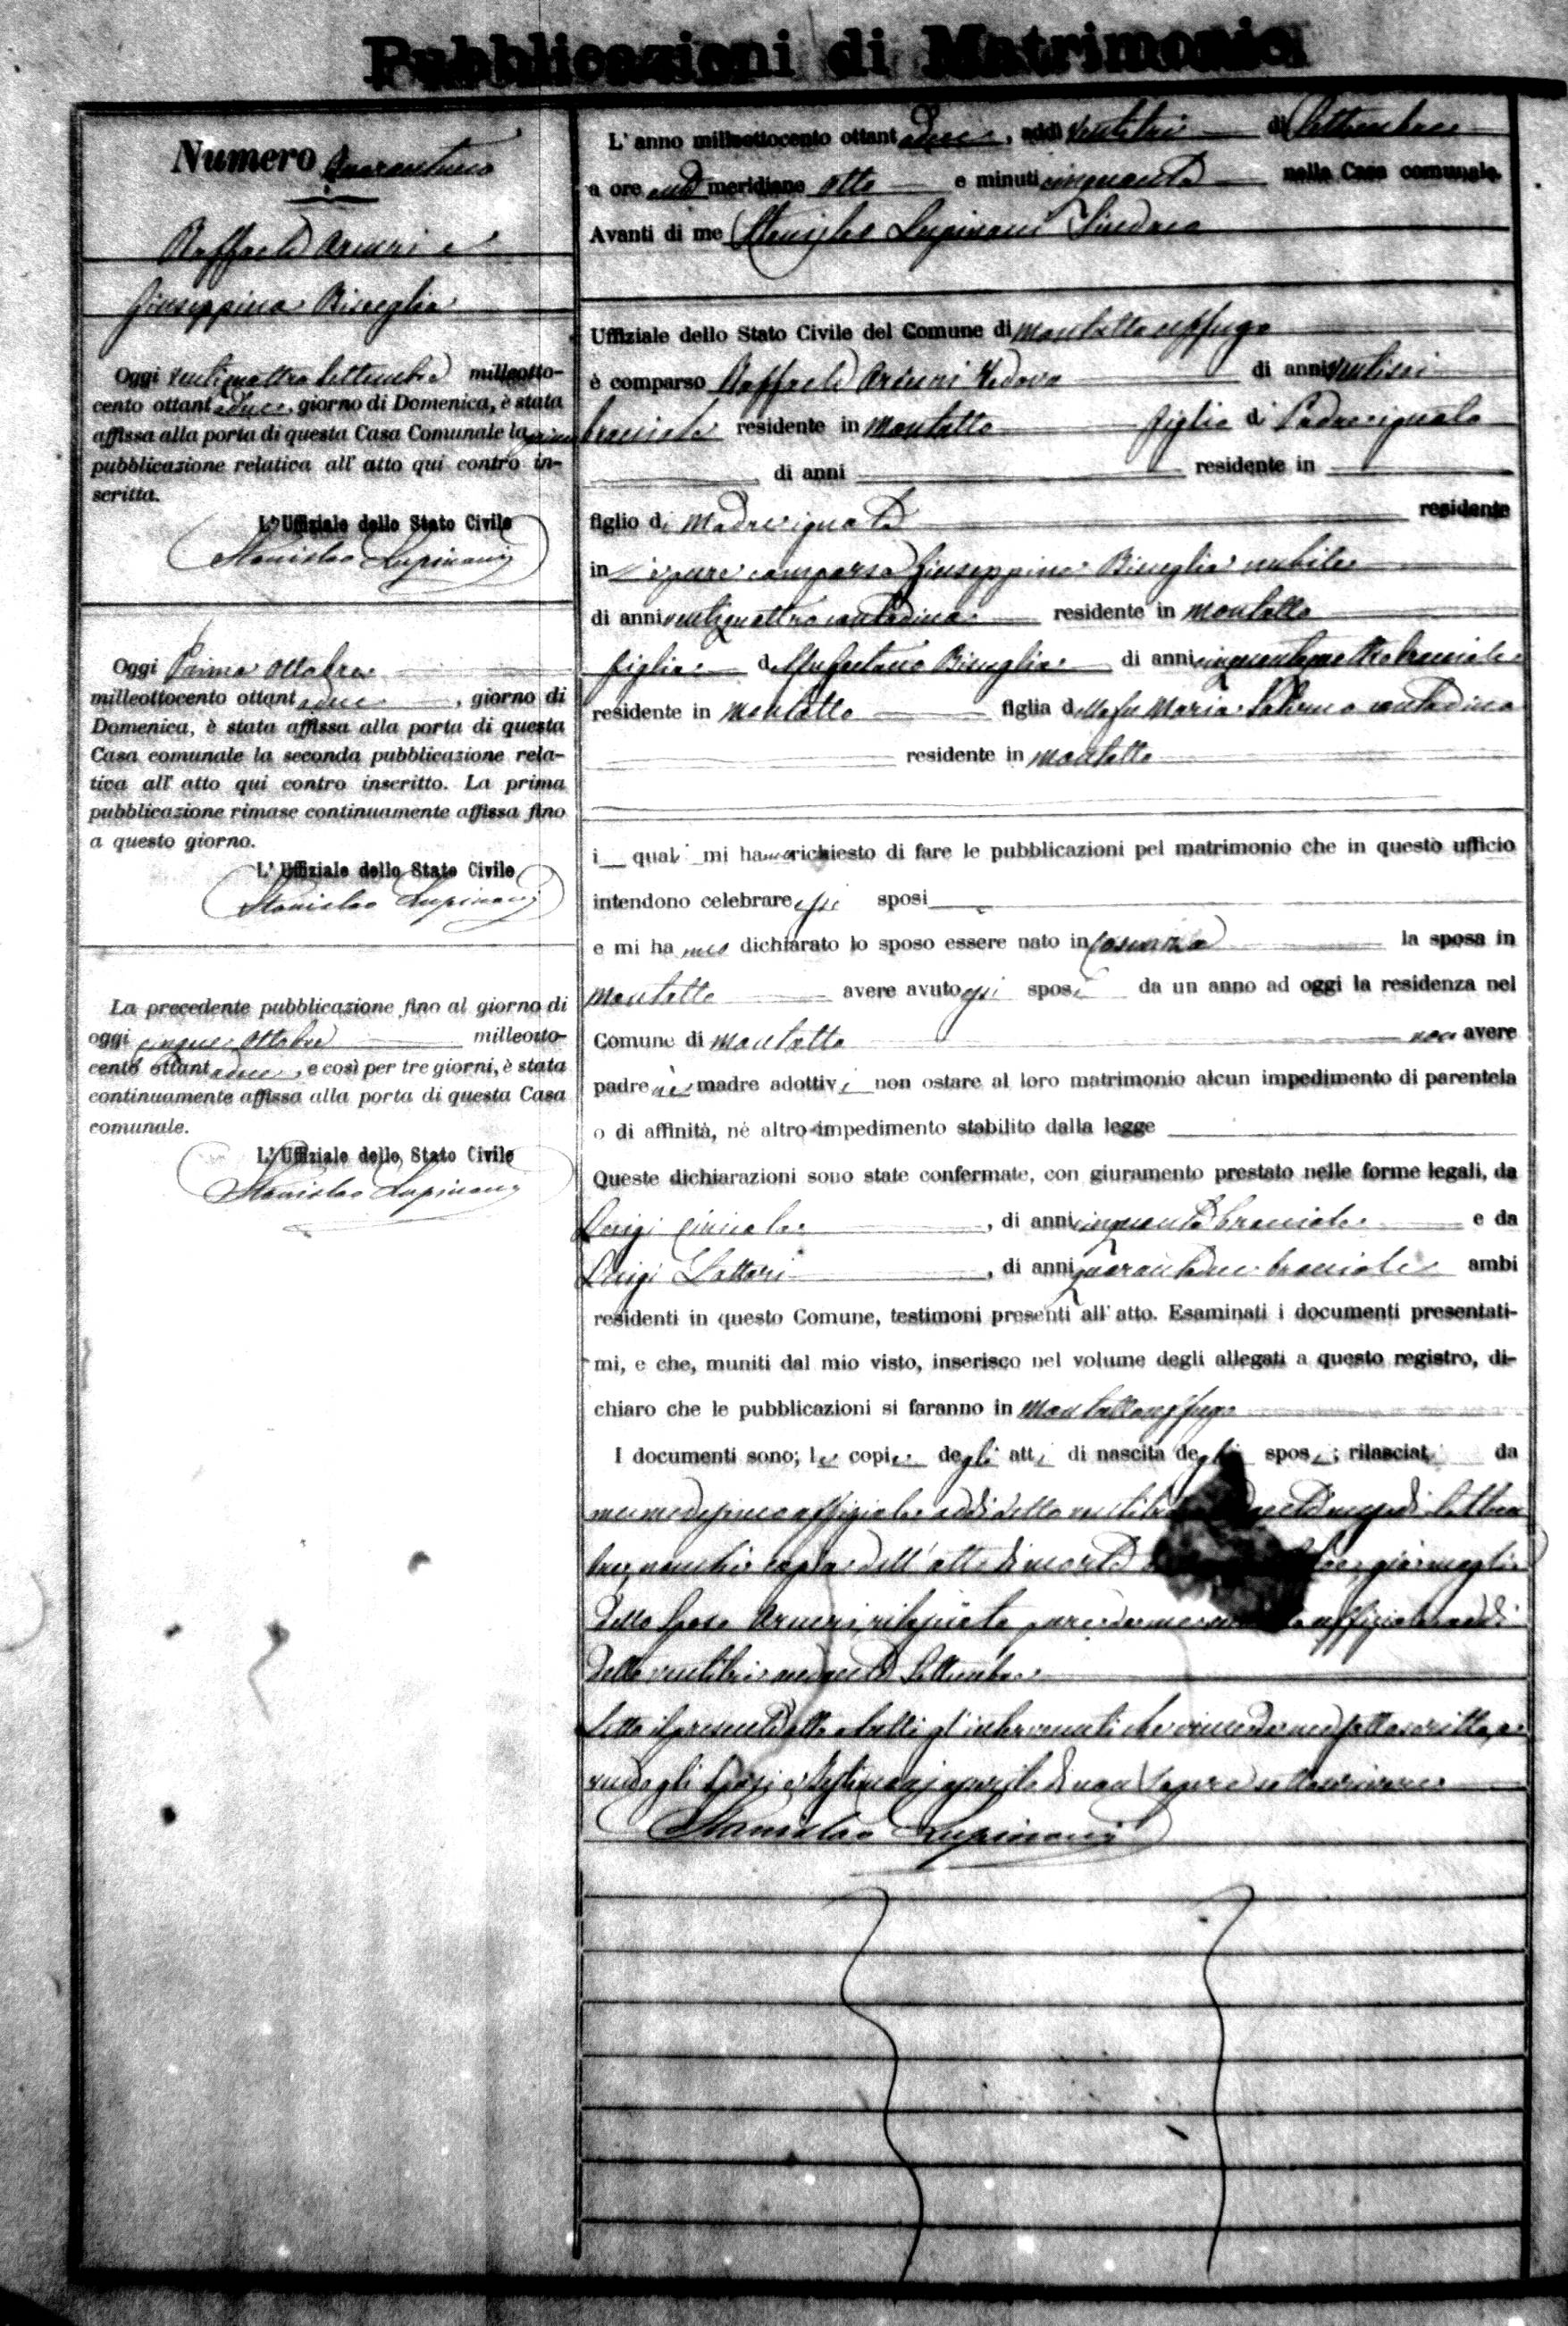 Pubblicazioni di Matrimonio
Numero Quarantuno
Raffaele Arcuri e
Giuseppina Bisceglia
Oggi ventiquattro Settembre milleotto-
cento ottantadue, giorno di Domenica, è stata
affissa alla porta di questa Casa Comunale la prima
pubblicazione relativa all' atto qui contro in-
scritta.
L'Uffiziale dello Stato Civile
Stanislao Lupinacci
Oggi Primo Ottobre
milleottocento ottantadue, giorno di
Domenica, è stata affissa alla porta di questa
Casa comunale la seconda pubblicazione rela-
tiva all' atto qui contro inscritto. La prima
pubblicazione rimase continuamente affissa fino
a questo giorno.
L'Uffiziale dello Stato Civile
Stanislao Lupinacci
La precedente pubblicazione fino al giorno di
oggi cinque Ottobre milleotto-
cento ottantadue, e così per tre giorni, è stata
continuamente affissa alla porta di questa Casa
comunale.
L'Uffiziale dello Stato Civile
Stanislao Lupinacci
L' anno milleottocento ottantadue, addì ventitrè di Settembre
a ore anti meridiane otto e minuti cinquanta nella Casa comunale.
Avanti di me Stanislao Lupinacci Sindaco
Uffiziale dello Stato Civile del Comune di Montalto Uffugo
è comparso Raffaele Arcuri Vedovo di anni ventisei
bracciale residente in Montalto figlio di Padre ignoto
di anni residente in
figlio di Madre ignota residente
in è pure comparsa Giuseppina Bisceglia nubile
di anni ventiquattro contadina residente in Montalto
figlia del fu Gaetano Bisceglia di anni bracciale
residente in Montalto figlia della fu Maria Salerno contadina
residente in Montalto
i quali mi hanno richiesto di fare le pubblicazioni pel matrimonio che in questo ufficio
intendono celebrare essi sposi
e mi hanno dichiarato lo sposo essere nato in Cosenza la sposa in
Montalto avere avuto essi sposi da un anno ad oggi la residenza nel
Comune di Montalto non avere
padre nè madre adottivi non ostare al loro matrimonio alcun impedimento di parentela
o di affinità, nè altro impedimento stabilito dalla legge
Queste dichiarazioni sono state confermate, con giuramento prestato nelle forme legali, da
Luigi, di anni cinquanta bracciale e da
Luigi Lattari, di anni quarantadue bracciale ambi
residenti in questo Comune, testimoni presenti all' atto. Esaminati i documenti presentati-
mi, e che, muniti dal mio visto, inserisco nel volume degli allegati a questo registro, di-
chiaro che le pubblicazioni si faranno in Montalto Uffugo
I documenti sono; le copie degli atti di nascita degli sposi; rilasciati da
me medesimo uffiziale addì dello ventitrè Settem
bre, nonchè copia dell' atto di morte già moglie
dello Sposo Arcuri rilasciata pure da me uffiziale addì
dello ventitrè andante Settembre
Letto il presente atto a tutti gl' intervenuti che viene da me sottoscritto, a
vendo gli Sposi e Testimoni asserito di non sapere sottoscrivere
Stanislao Lupinacci